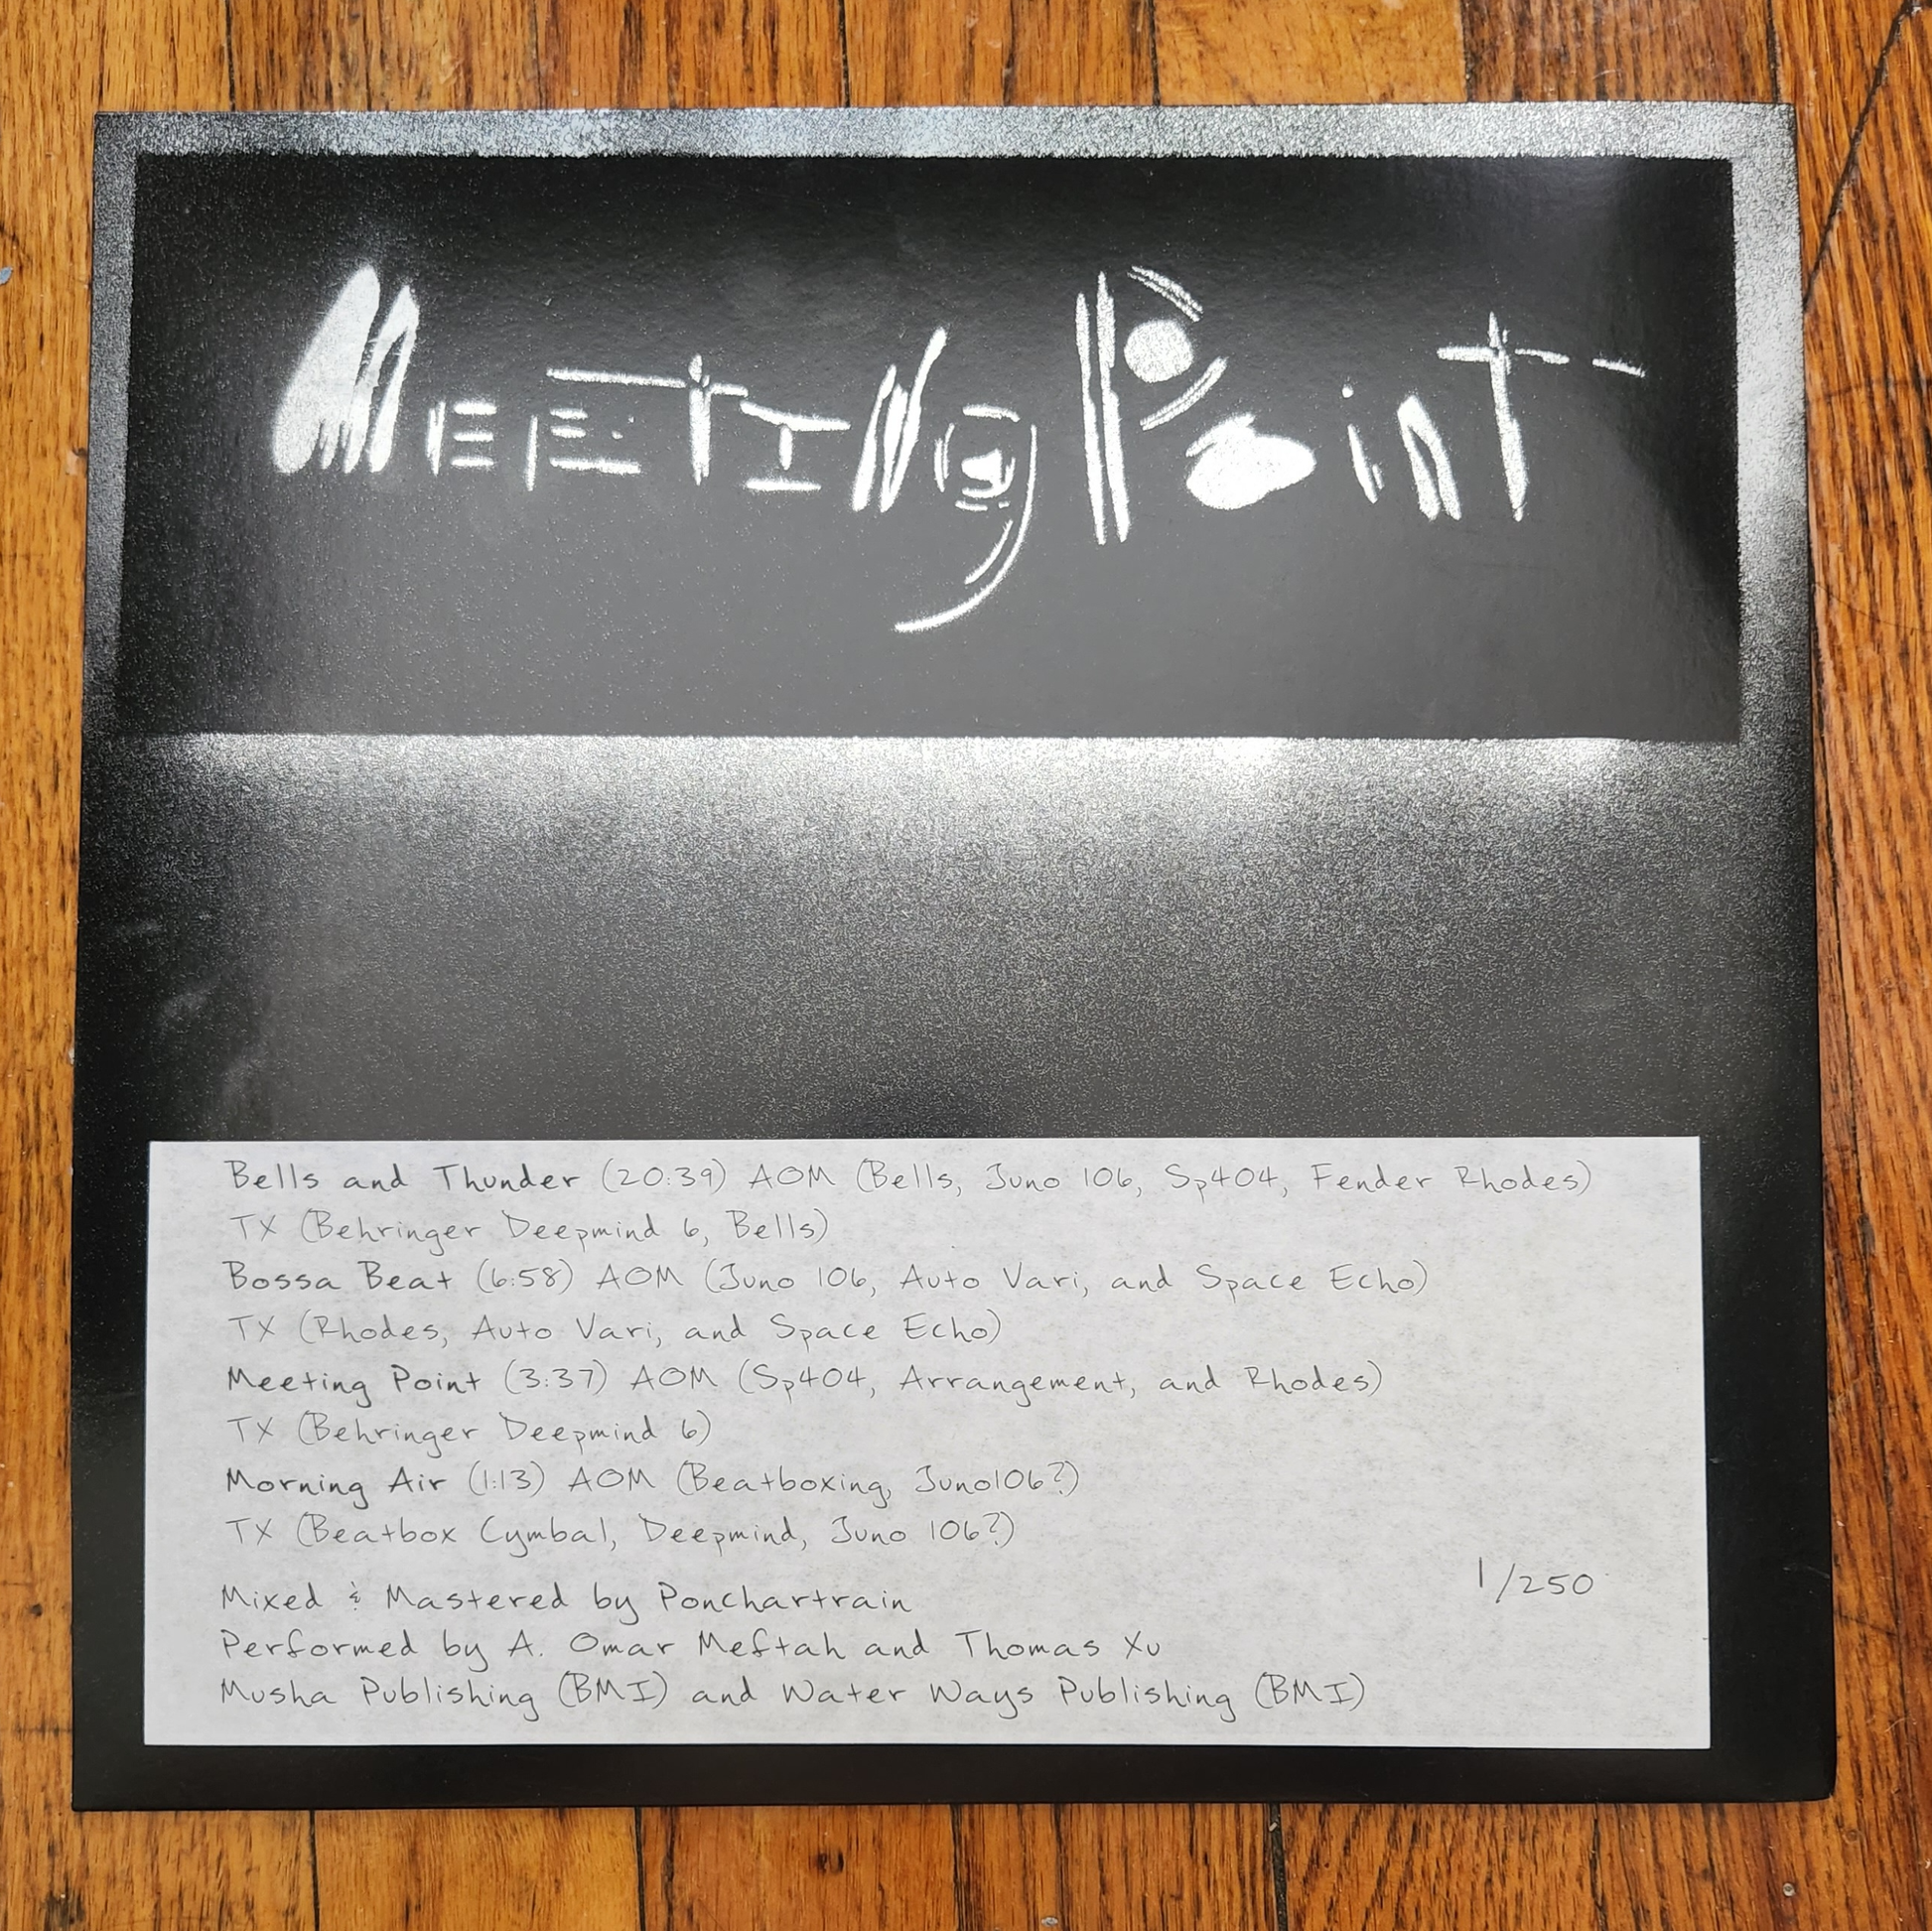 MEETING Point
Bells and Thunder (20:39) AOM (Bells, Juno 106, Sp404, Fender Rhodes)
TX (Behringer Deepmind 6, Bells)
Bossa Beat (6:58) AOM (Juno 106, Auto Vari, and Space Echo)
TX (Rhodes, Auto Vari, and Space Echo)
Meeting Point (3:37) AOM (Sp404, Arrangement, and Rhodes)
TX (Behringer Deepmind 6)
Morning Air (1:13) AOM (Beatboxing, Juno106?)
TX (Beatbox Cymbal, Deepmind, Juno 106?)
1/250
Mixed & Mastered by Ponchartrain
Performed by A. Omar Meftah and Thomas Xu
Musha Publishing (BMI) and Water Ways Publishing (BMI)